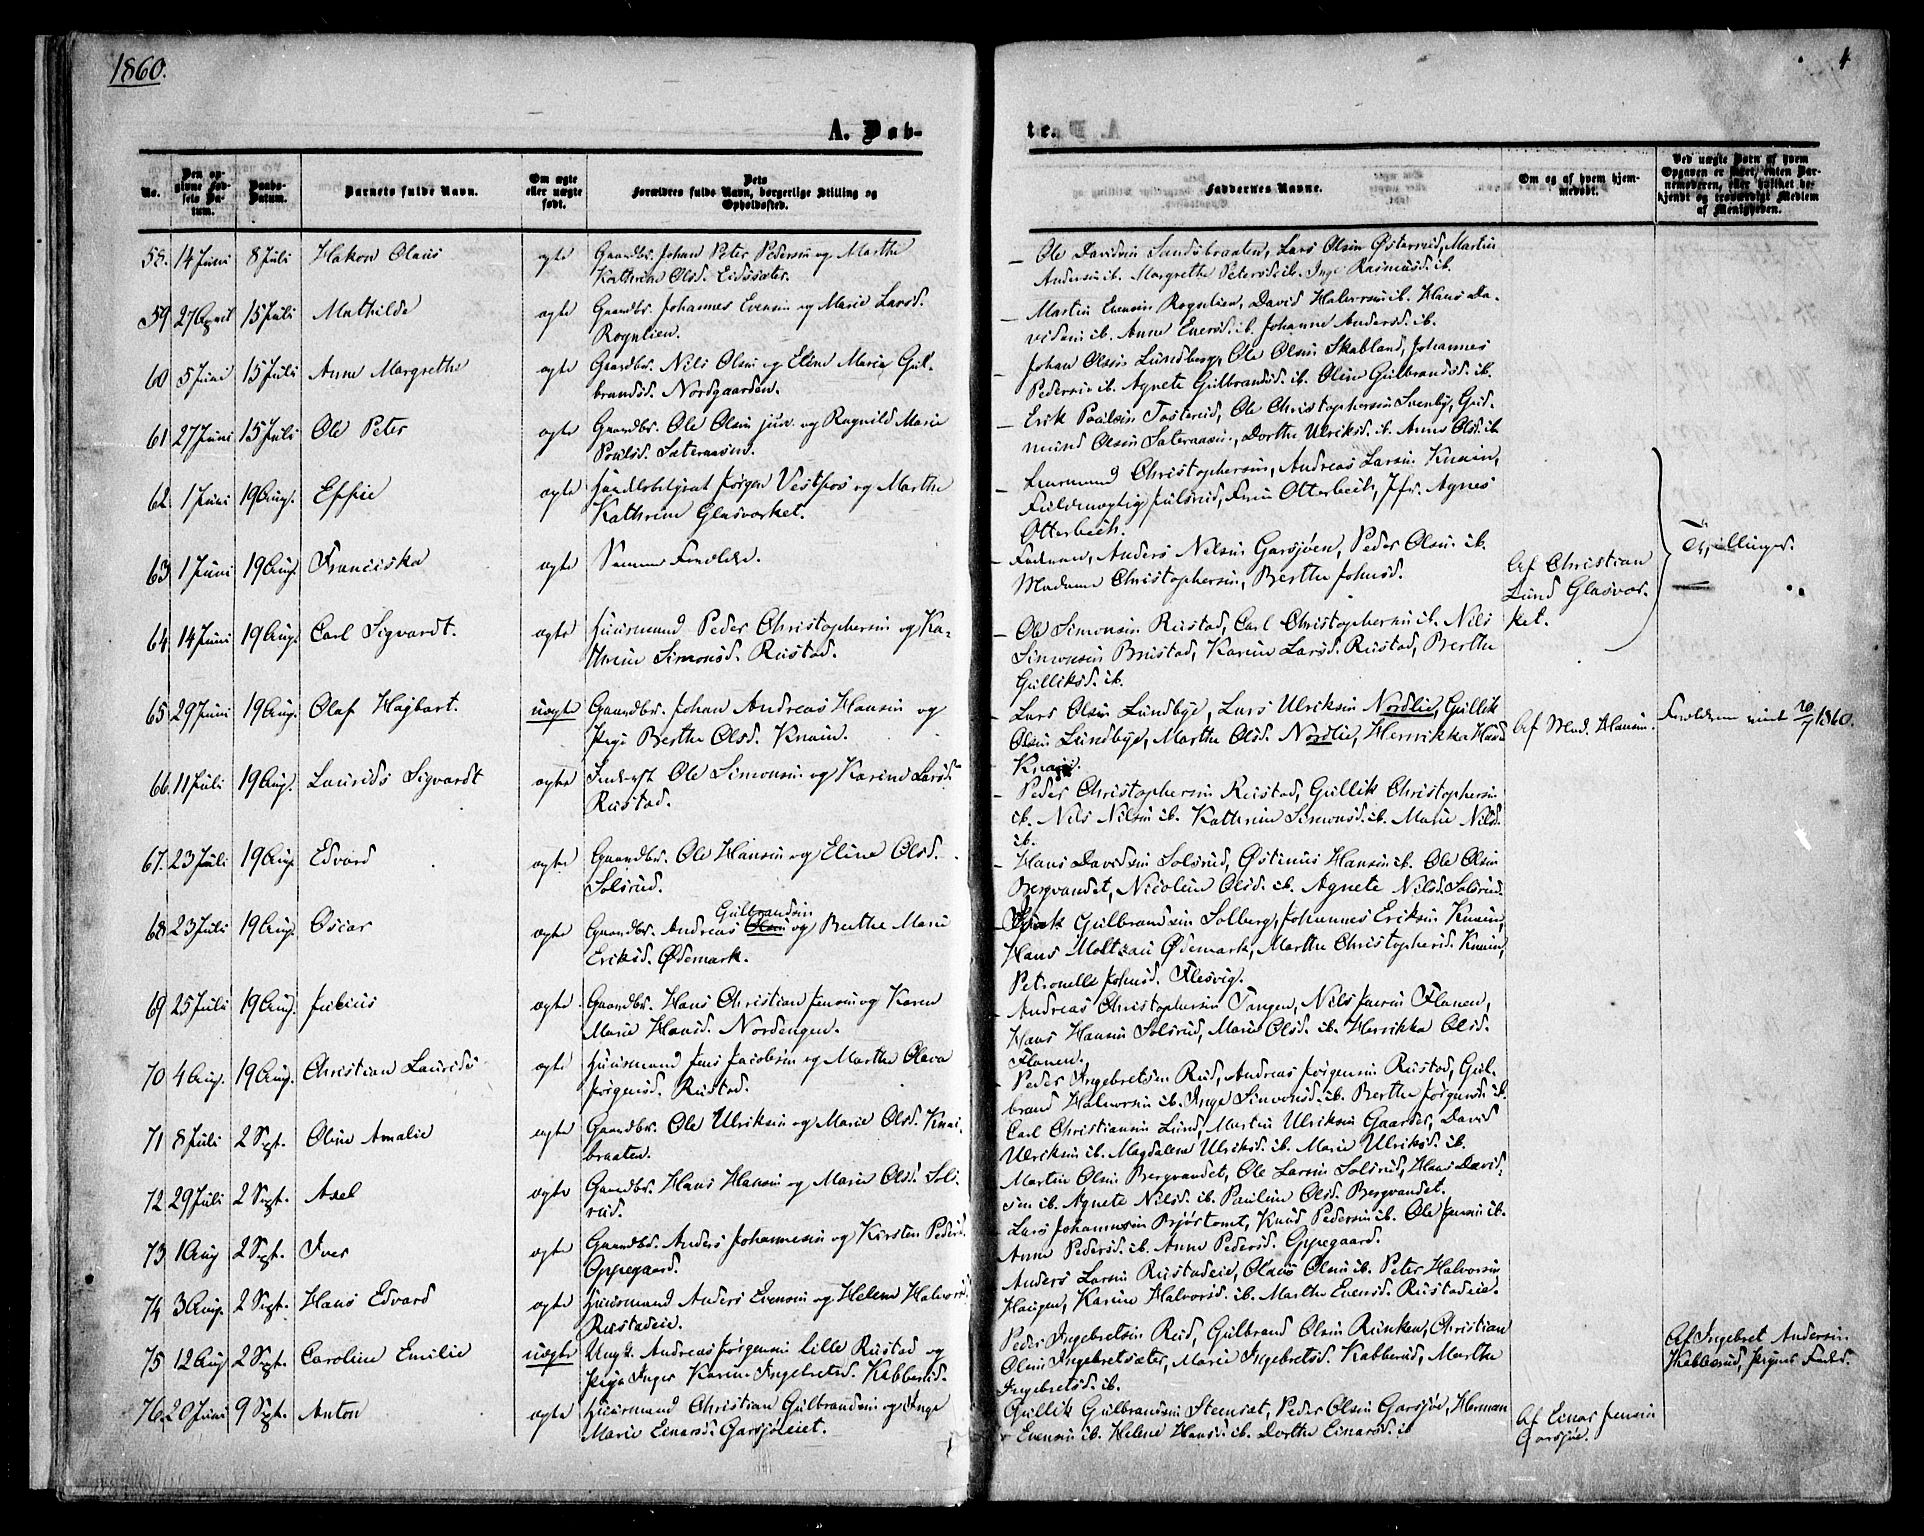 1860.
4
A. Døb-
te.
No.
Den op-
givne Fød-
sels Da-
tum.
Daabs-
Datum.
Barnets fulde Navn.
Om ægte
eller uægte
født.
Dets
Forældres fulde Navn, borgerlige Stilling og
Opholdssted.
Faddernes Navne.
Om og af hvem hjem-
medøbt.
Ved uægte Børn af hvem
Opgaven er skeet, enten Bar-
nemoderen, eller hvilket be-
kjendt og troværdigt Medlem
af Menigheden.
58. 14 Juni 8 Juli Hakon Olaus ægte Gaardbr. Johan Peter Pedersen og Marthe
Kathrine Olsd. Eidssæter.
Ole Davidsen Sundsbraaten, Lars Olsen Østerud, Martin
Andersen ib. Margrethe Petersd. ib. Inge Rasmusd. ib.
59 27 April 15 Juli Mathilde ægte Gaardbr. Johannes Evensen og Marie Larsd.
Rognlien.
Martin Evensen Rognlien, David Halvorsen ib. Hans Da-
vidsen ib. Anne Evensd. ib. Johanne Andersd. ib.
60 5 Juni 15 Juli Anne Margrethe ægte Gaardbr. Nils Olsen og Eline Marie Gul-
brandsd. Nordgaarden.
Johan Olsen Lundberg, Ole Olsen Skabland, Johannes
Pedersen ib. Agnete Gulbrandsd. ib. Oline Gulbrandsd. ib.
61 27 Juni 15 Juli Ole Peter ægte Gaardbr. Ole Olsen jun. og Ragnild Marie
Poulsd. Sæteraasen.
Erik Poulsen Tosterud, Ole Christophersen Svenby, Gud-
mund Olsen Sæteraasen, Dorthe Ulriksd. ib. Anne Olsd. ib
62 1 Juni 19 Aug. Effie ægte Handelsbetjent Jørgen Vestfos og Marthe
Kathrine Glasværket.
Leermand Christophersen, Andreas Larsen Knain,
Fuldmægtig Julsrud, Fruen Otterbech, Jfr. Agnes
Otterbech.
Tvillinger.
63 1 Juni 19 Aug. Franciska ægte Samme Forældre.
Faderen, Anders Nilsen Garsjøen, Peder Olsen ib.
Madame Christophersen, Berthe Johnsd.
Af Christian
Lund Glasvær-
ket.
64 14 Juni 19 Aug. Carl Sigvardt. ægte Huusmand Peder Christophersen og Ka-
thrine Simonsd. Rustad.
Ole Simonsen Rustad, Carl Christophersen ib. Nils
Simonsen Brustad, Karine Larsd. Rustad, Berthe
Gulliksd. ib.
65 29 Juni 19 Aug. Olaf Hagbart. uægte Gaardbr. Johan Andreas Hansen og
Pige Berthe Olsd. Knain.
Lars Olsen Lundbye, Lars Ulriksen Nordlie, Gullik
Olsen Lundbye, Marthe Olsd. Nordlie, Henrikka Hansd.
Knain.
Af Mad. Hansen.
Forældrene viet 20/7 1860.
66 11 Juli 19 Aug. Laurids Sigvardt ægte Inderst Ole Simonsen og Karine Larsd.
Rustad.
Peder Christophersen Rustad, Gullik Christophersen
ib. Nils Nilsen ib. Kathrine Simonsd. ib. Marie Nilsd.
ib.
67. 23 Juli 19 Aug. Edvard ægte Gaardbr. Ole Hansen og Eline Olsd.
Solsrud.
Hans Davidsen Solsrud, Østinus Hansen ib. Ole Olsen
Bergvandet, Nicoline Olsd. ib. Agnete Nilsd. Solsrud.
68 23 Juli 19 Aug. Oscar ægte Gaardbr. Andreas Olsen Gulbrandsen og Berthe Marie
Eriksd. Ødemark.
Gulbrandsen Solberg, Johannes Eriksen Knain,
Hans Moltzau Ødemark, Marthe Christophersd. Knain,
Petronelle Johnsd. Flesvig.
69 25 Juli 19 Aug. Julius ægte Gaardbr. Hans Christian Jensen og Karen
Marie Hansd. Nordengen.
Andreas Christophersen Tangen, Nils Jensen Flanen,
Hans Hansen Solsrud, Marie Olsd. ib. Henrikka Olsd.
Flanen.
70 4 Aug. 19 Aug. Christian Laurids ægte Huusmand Jens Jacobsen og Marthe Olava
Jørgensd. Rustad.
Peder Ingebretsen Rud, Andreas Jørgensen Rustad, Gul-
brand Halvorsen ib. Inge Simonsd. ib. Berthe Jørgensd. ib.
71 8 Juli 2 Sept. Oline Amalie ægte Gaardbr. Ole Ulriksen og Marie Olsd. Knai-
braaten.
Carl Christiansen Lund, Martin Ulriksen Gaarder, David
Ulriksen ib. Magdalene Ulriksd. ib. Marie Ulriksd. ib.
72 29 Juli 2 Sept. Axel ægte Gaardbr. Hans Hansen og Marie Olsd. Sol-
rud.
Martin Olsen Bergvandet, Ole Larsen Solsrud, Hans David-
sen ib. Agnete Nilsd. ib. Pauline Olsd. Bergvandet.
73 1 Aug 2 Sept. Iver ægte Gaardbr. Anders Johannesen og Kirsten Pedersd.
Oppegaard.
Lars Johannesen Bjørtomt, Knud Pedersen ib. Ole Jensen ib.
Anne Pedersd. ib. Anne Pedersd. Oppegaard.
74 3 Aug. 2 Sept. Hans Edvard ægte Huusmand Anders Evensen og Helene Halvorsd.
Rustadeie.
Anders Larsen Rustadeie, Olaus Olsen ib. Peter Halvorsen
Haugen, Karine Halvorsd. ib. Marthe Evensd. Rustadeie.
75 12 Aug 2 Sept. Caroline Emilie uægte Ungk. Andreas Jørgensen lille Rustad og
Pige Inger Karine Ingebretsd. Kabberud.
Peder Ingebretsen Rud, Gulbrand Olsen Runken, Christian
Olsen Ingebretsæter, Marie Ingebretsd. Kabberud, Marthe
Ingebretsd. ib.
Af Ingebret Andersen
Kabberud, Pigens Fader.
76. 20 Juni 9 Sept. Anton ægte Huusmand Christian Gulbrandsen og Inge
Marie Einarsd. Garsjøeiet.
Gullik Gulbrandsen Stensæt, Peder Olsen Garsjøe, Herman
Evensen ib. Helene Hansd. ib. Dorthe Einarsd. ib
Af Einar Jensen
Garsjøe.